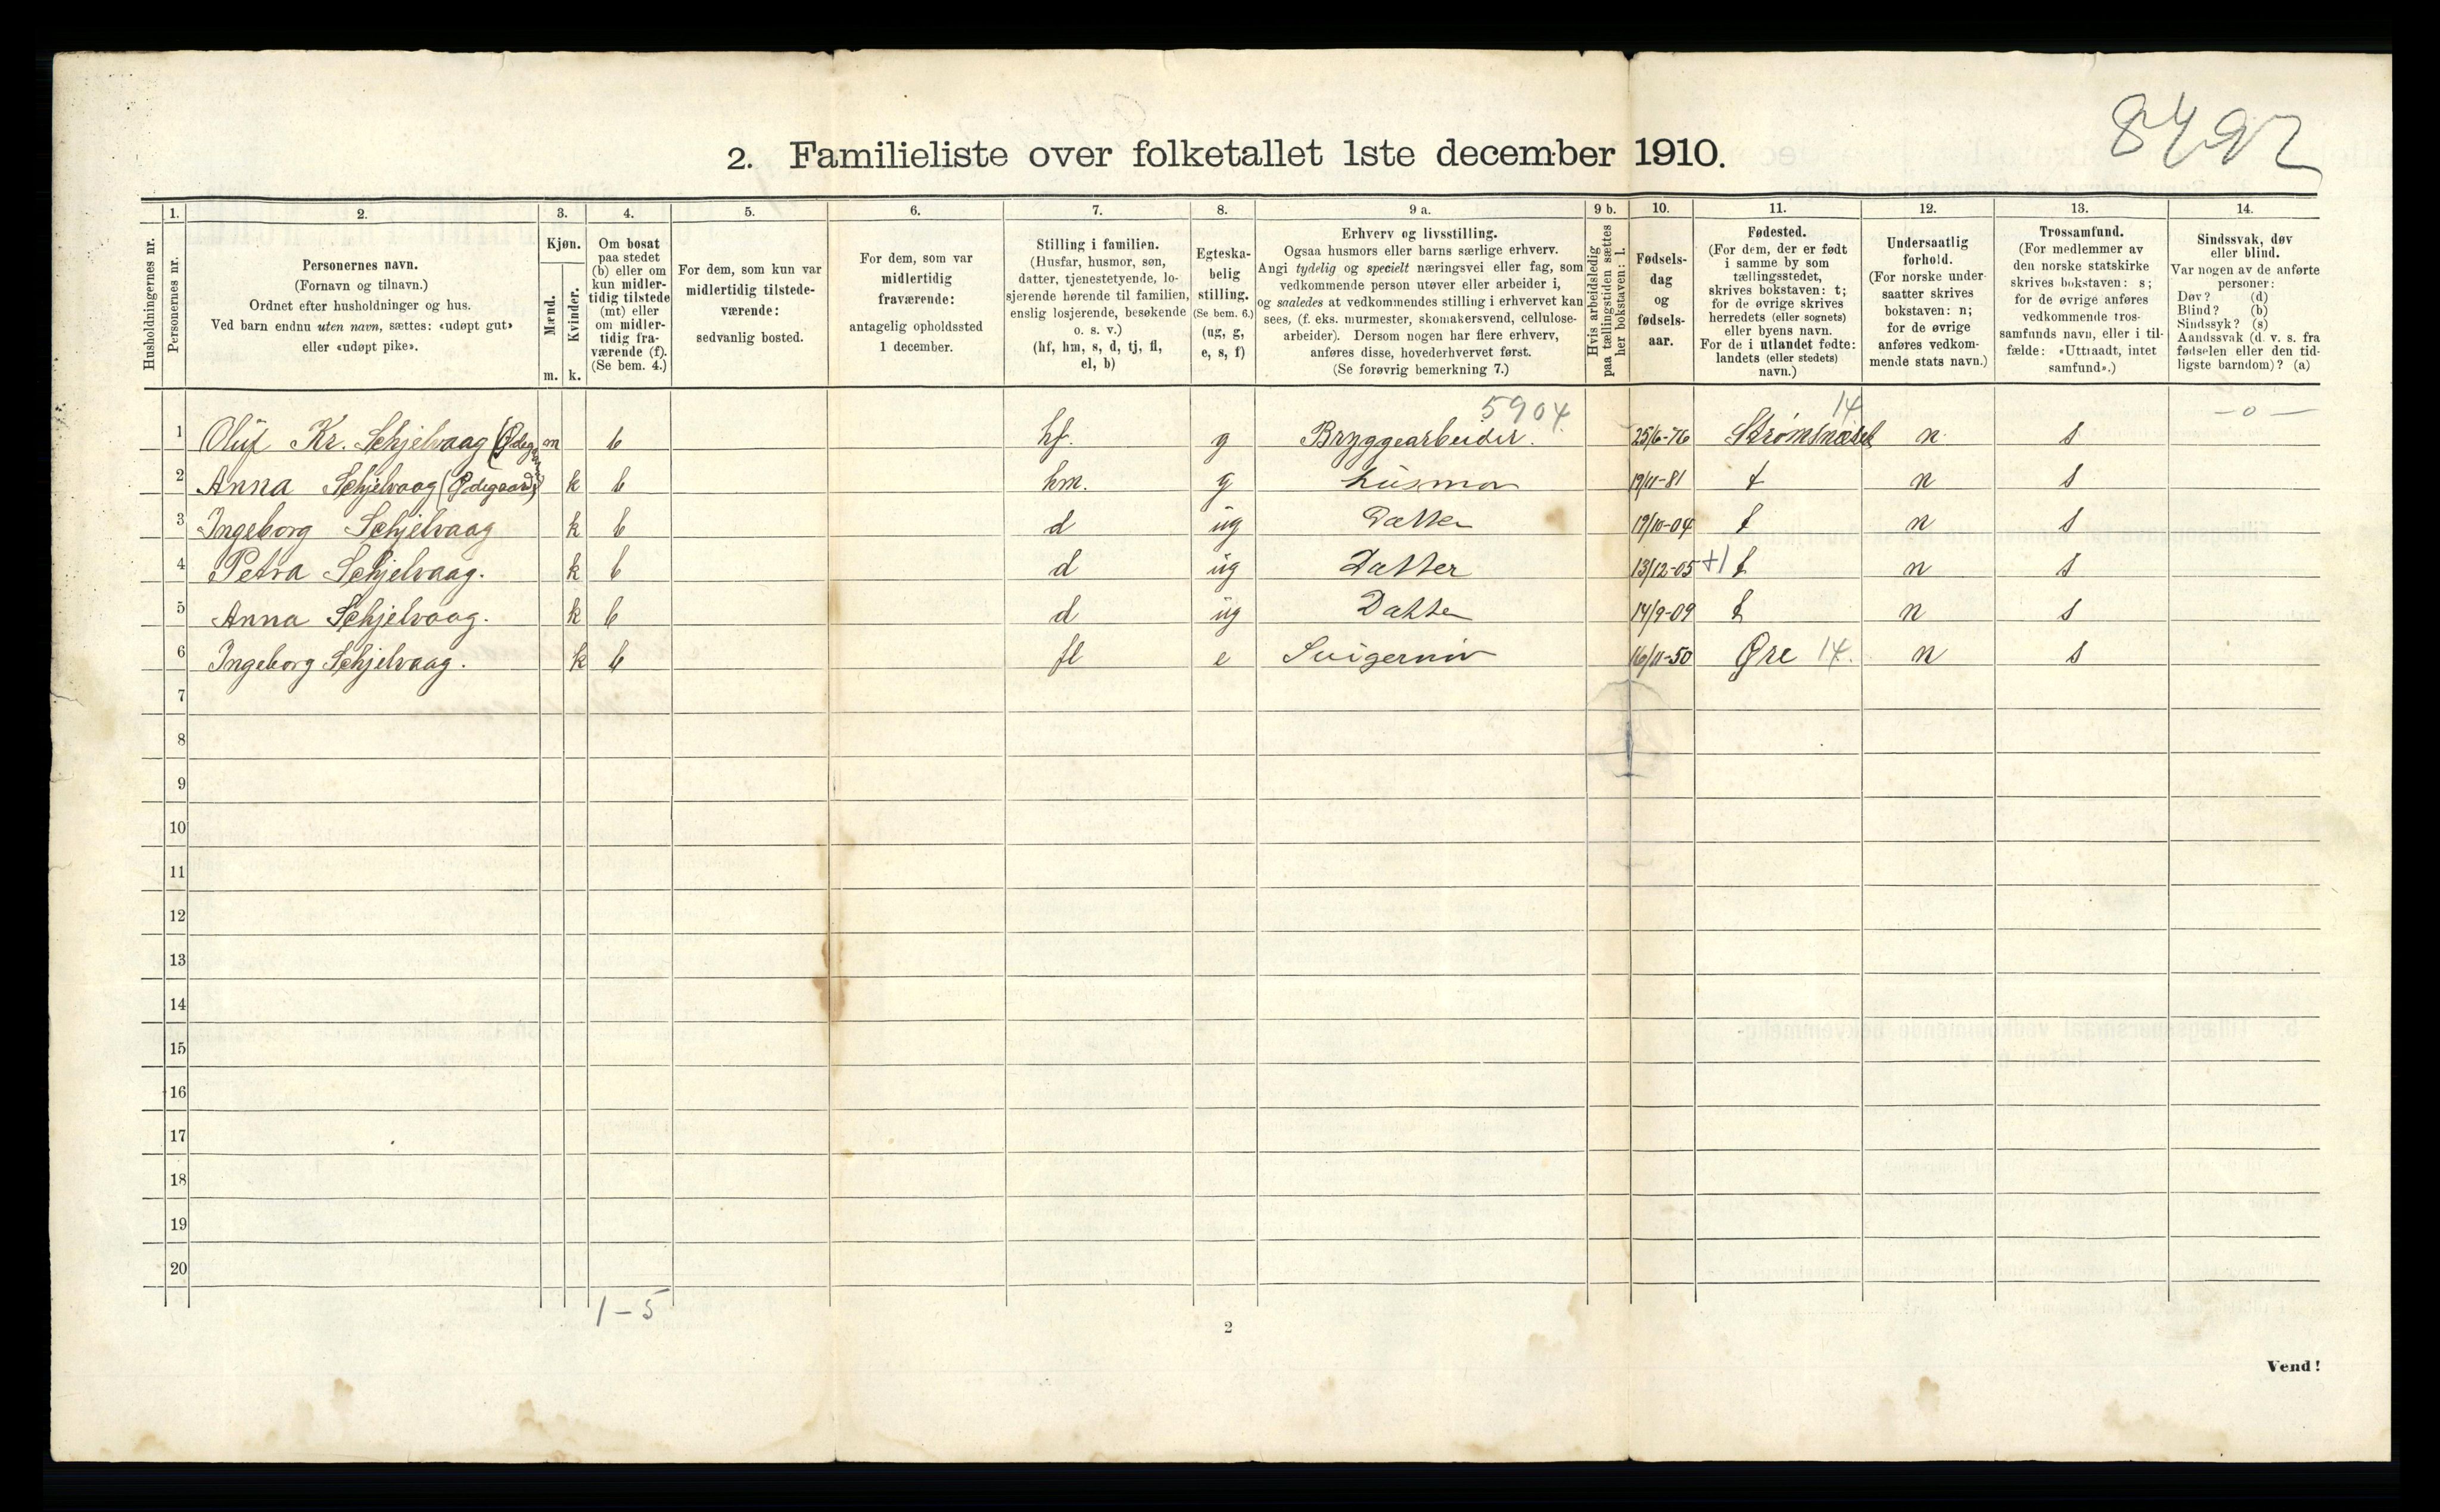 8492
2. Familieliste over folketallet 1ste december 1910.
1. 2. 3. 4. 5. 6. 7. 8. 9 a. 9 b. 10. 11. 12. 13. 14.
Husholdningernes nr.
Personernes nr.
Personernes navn.
(Fornavn og tilnavn.)
Ordnet efter husholdninger og hus.
Ved barn endnu uten navn, sættes: «udøpt gut»
eller «udøpt pike».
Kjøn.
Mænd.
Kvinder.
m. k.
Om bosat
paa stedet
(b) eller om
kun midler-
tidig tilstede
(mt) eller
om midler-
tidig fra-
værende (f).
(Se bem. 4.)
For dem, som kun var
midlertidig tilstede-
værende:
sedvanlig bosted.
For dem, som var
midlertidig
fraværende:
antagelig opholdssted
1 december.
Stilling i familien.
(Husfar, husmor, søn,
datter, tjenestetyende, lo-
sjerende hørende til familien,
enslig losjerende, besøkende
o. s. v.)
(hf, hm, s, d, tj, fl,
el, b)
Egteska-
belig
stilling.
(Se bem. 6.)
(ug, g,
e, s, f)
Erhverv og livsstilling.
Ogsaa husmors eller barns særlige erhverv.
Angi tydelig og specielt næringsvei eller fag, som
vedkommende person utøver eller arbeider i,
og saaledes at vedkommendes stilling i erhvervet kan
sees, (f. eks. murmester, skomakersvend, cellulose-
arbeider). Dersom nogen har flere erhverv,
anføres disse, hovederhvervet først.
(Se forøvrig bemerkning 7.)
Hvis arbeidsledig
paa tællingstiden sættes
her bokstaven: l.
Fødsels-
dag
og
fødsels-
aar.
Fødested.
(For dem, der er født
i samme by som
tællingsstedet,
skrives bokstaven: t;
for de øvrige skrives
herredets (eller sognets)
eller byens navn.
For de i utlandet fødte:
landets (eller stedets)
navn.)
Undersaatlig
forhold.
(For norske under-
saatter skrives
bokstaven: n;
for de øvrige
anføres vedkom-
mende stats navn.)
Trossamfund.
(For medlemmer av
den norske statskirke
skrives bokstaven: s;
for de øvrige anføres
vedkommende tros-
samfunds navn, eller i til-
fælde: «Uttraadt, intet
samfund».)
Sindssvak, døv
eller blind.
Var nogen av de anførte
personer:
Døv? (d)
Blind? (b)
Sindssyk? (s)
Aandssvak (d. v. s. fra
fødselen eller den tid-
ligste barndom)? (a)
5904 14 -0-
1 Oluf Kr. Schjelvaag (Ødegaard) m b hf. g Bryggearbeider. 25/6-76 Strømsnæset n s
2 Anna Schjelvaag (Ødegaard) k b hm. g husmor 19/11-81 t n s
3 Ingeborg Schjelvaag k b d ug Datter 19/10-04 t n s
4 Petra Schjelvaag. k b d ug Datter 13/12-05 +1 t n s
5 Anna Schjelvaag. k b d ug Datter 14/9-09 t n s
6 Ingeborg Schjelvaag. k b fl e Svigermor 16/11-50 Øre 14. n s
7
8
9
10
11
12
13
14
15
16
17
18
19
20
1-5
2
Vend!